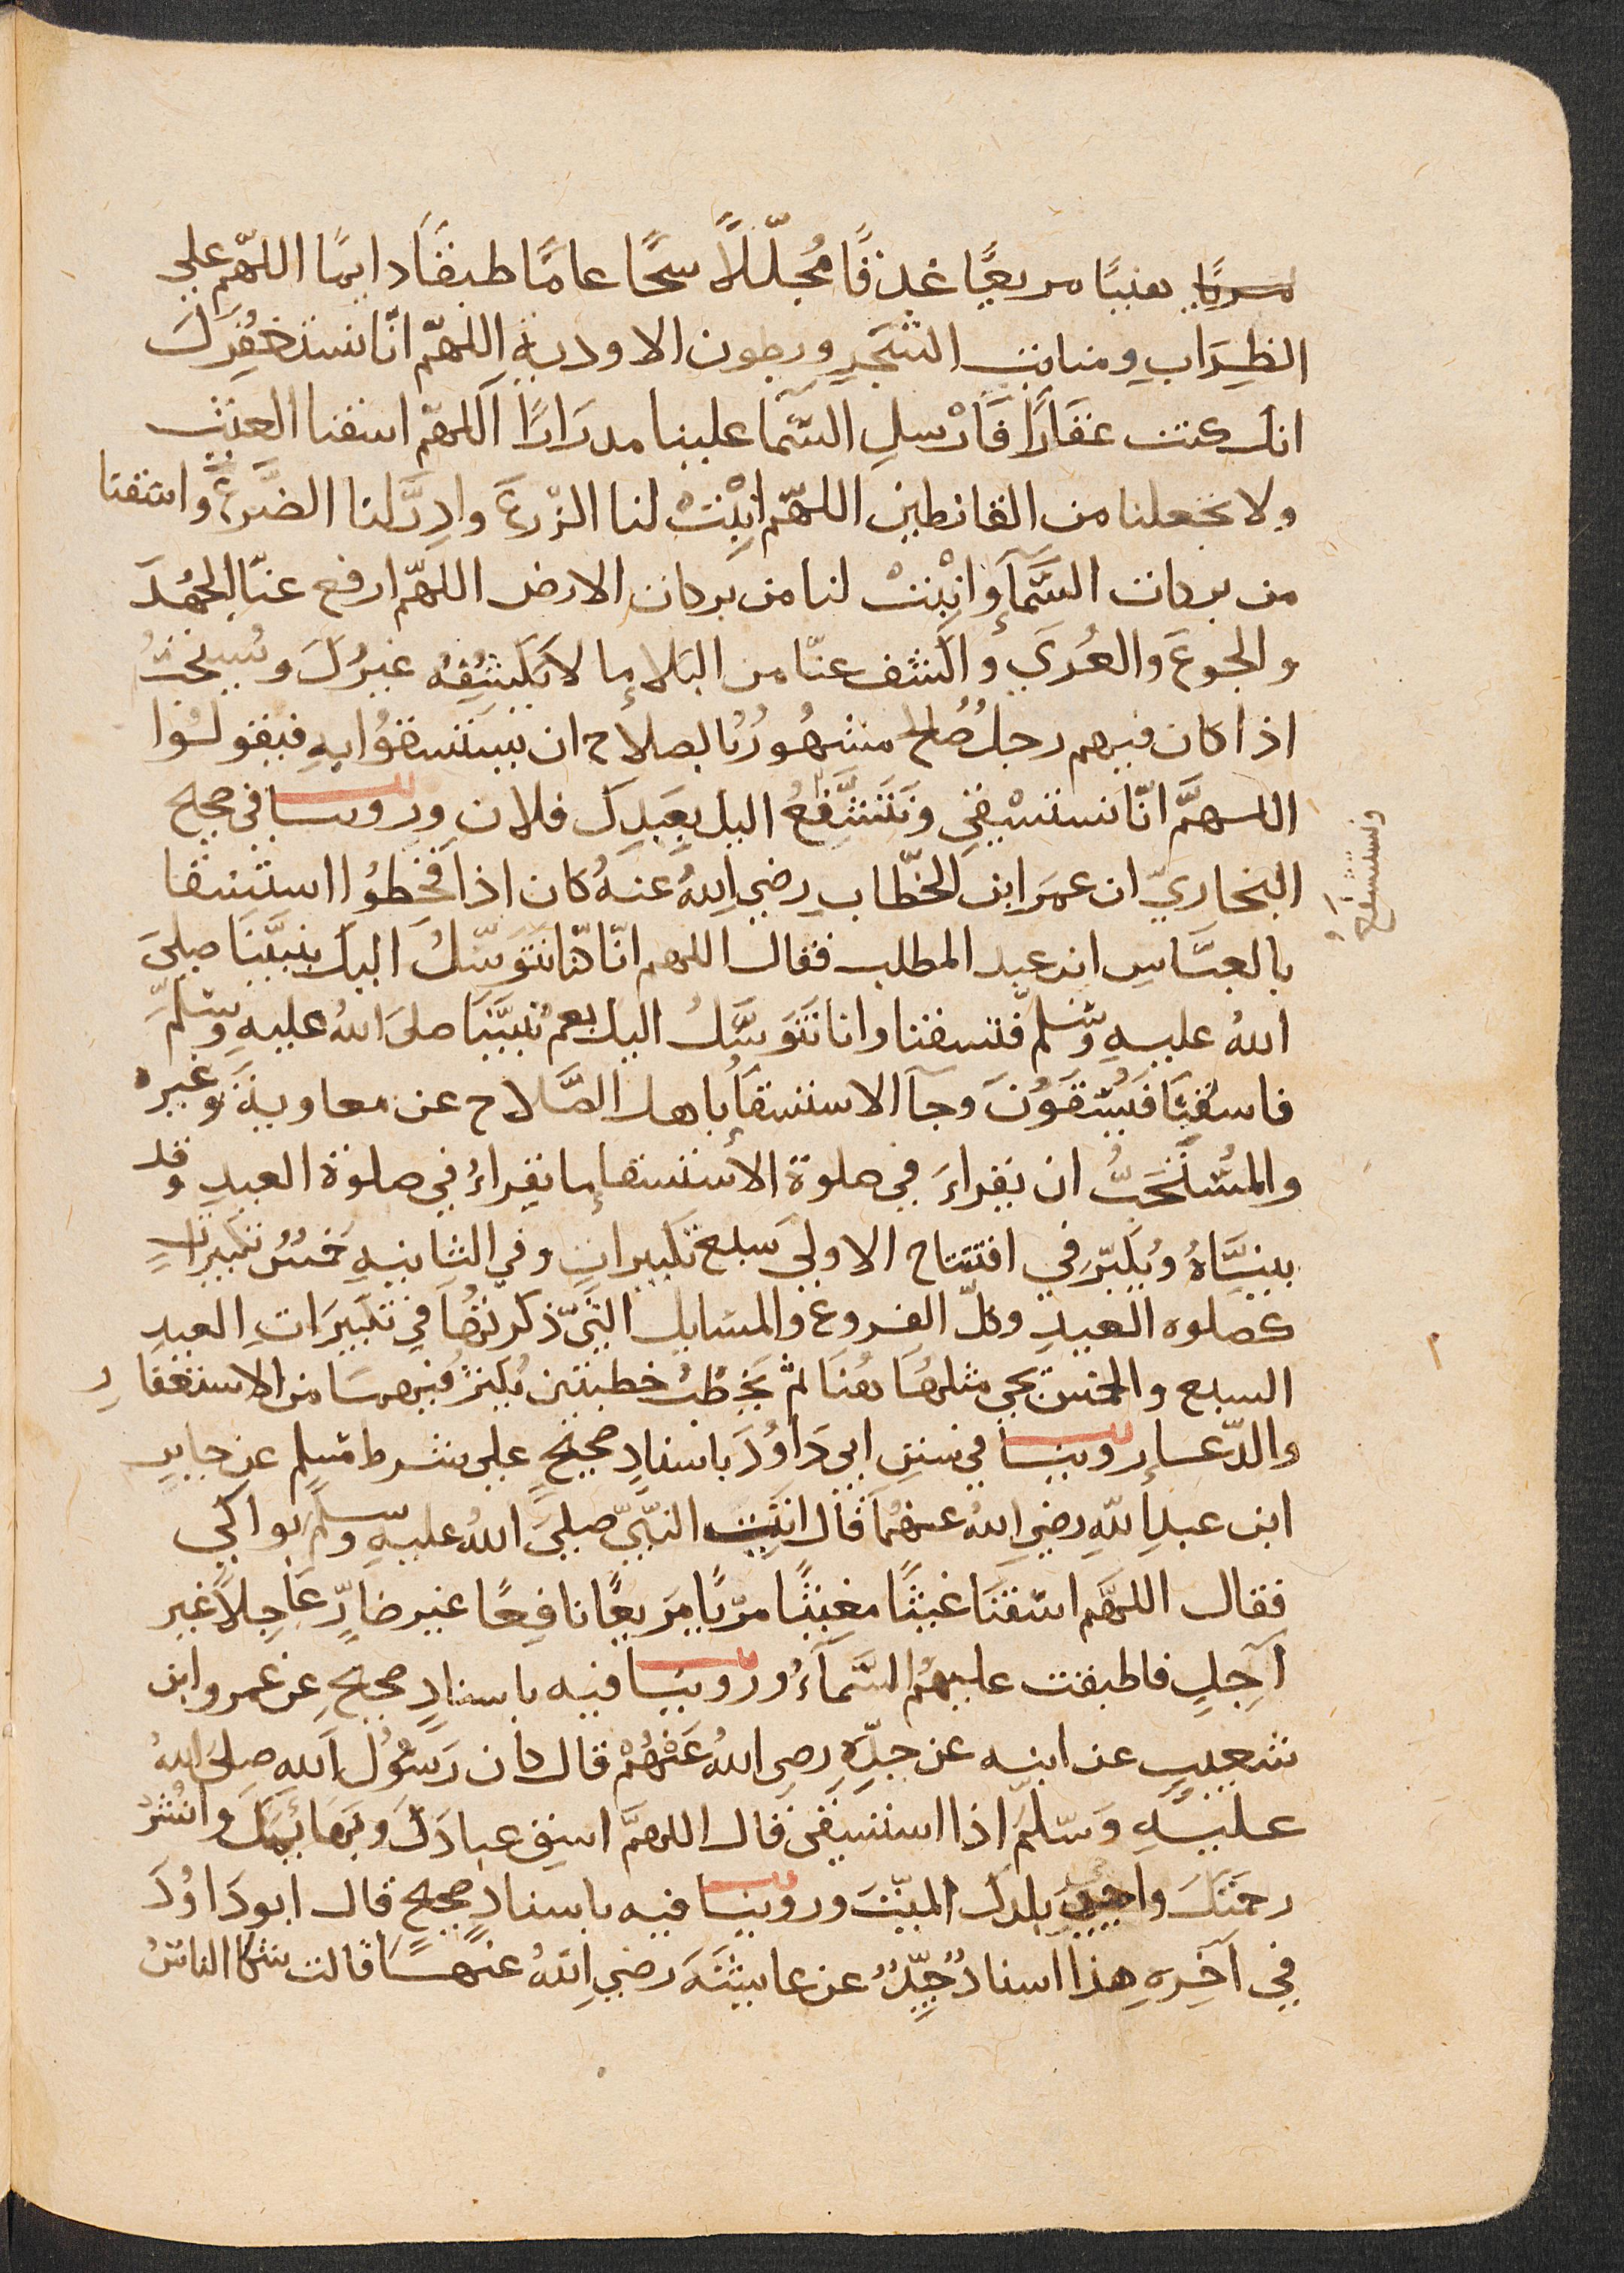 مريًا هنيًا مريعًا غدقًا مُجلّلًا سحًّا عامًّا طبقًا دايمًا اللهّم علي
الظِرَابِ ومنابت الشجَرِ وبطون الاوديةِ اللهّم انّا نستغفِرُكَ
انك كنت غفارًا فَارْسلِ السّمآ علينا مدرَارًا اللهّم اسقنا الغيث
ولا تجعلنا من القانطين اللهّم انبِتْ لنا الزّرعَ وادِرَّ لنا الضَّرعَ واسقنا
من بركات السَّمآءِ وانبِتْ لنا من بركات الارض اللهّم ارفع عنّا الجَهدَ
والجوعَ والعُريَ واكشف عنّا من البَلاءِ ما لا يَكشِفُهُ غيرُكَ ويُستحبُّ
اذا كان فيهم رجلٌ صُالحٌ مشهُورٌ بالصلاح ان يستسقوُا بهِ فيقولُوا
اللهمَّ انّا نستسْقي ونَتَشَّفعُ اليك بِعَبدِكَ فلان وروينا في صحيح
ونستشفع
البخاريّ ان عمرَ ابن الخطّاب رضي اللهُ عنهُ كان اذا قحطوُا استسقا
بالعبَّاسِ ابن عبد المطلب فقال اللهم انّا كنّا نتوَسّلُ اليكَ بنبيَّنَا صليَ
اللهُ عليهِ وسَلّم فتسقنا وانا نتَوَسَّلُ اليك بعم نبيّنَا صليَ اللهُ عليهِ وسَلّمَ
فاسقنَا فيُسْقَوْنَ وجآ الاستسقآءُ باهل الصَّلاح عن معاويةَ وغيره
والمُستَحَبُّ ان يقراءَ في صلوة الأستسقاءِ ما يقراءُ في صلوة العيدِ وقد
بينّاهُ ويُكبّر في افتتاح الاوليَ سَبع تكبيراتٍ وفي الثانيهِ خمسُ تكبيراتٍ
كصلوه العيدِ وكلّ الفروعِ والمسايل التّي ذكرتُهَا في تكبيرَاتِ العيدِ
السبع والخمس يجي مثلهَا هُنَا ثم يخطُبُ خطبتين يُكثِرُ فيهمَا من الاستغفارِ
والدّعاءِ روينا في سننِ ابي دَاوُدَ باسنادٍ صحيحٍ علي شرط مسلمٍ عن جابرِ
ابن عبدِ اللّهِ رضي اللهُ عنهُما قال اتتِ النبّيَّ صليَ اللهُ عليهِ وسلّم بواكي
فقال اللهَّم اسقنَا غيثًا مغيثًا مريًا مَريعًا نافِعًا غير ضارٍّ عاجِلًا غير
آجِلٍ فاطبقت عليهُمُ السَّمآءُ وروينا فيه باسنادٍ صحيحٍ عن عمرو ابن
شعيبٍ عن ابيه عن جدّهِ رضي اللهُ عَنْهُمْ قال كان رَسُوُلُ اللهِ صليَ اللهُ
عليهِ وَسّلمَ اذا استسقَى قال اللهمَّ اسقِ عبادَكَ وبَهَائِمَكَ وانْشُرْ
رحمَتَكَ واحيي بلدَكَ الميّتَ وروينا فيه باسنادٍ صحيحٍ قال ابو دَاوُدَ
في آخِرهِ هذا اسنادٌ جيّدٌ عن عايشَةَ رضي اللهُ عنهَا قالت شكا الناسُ